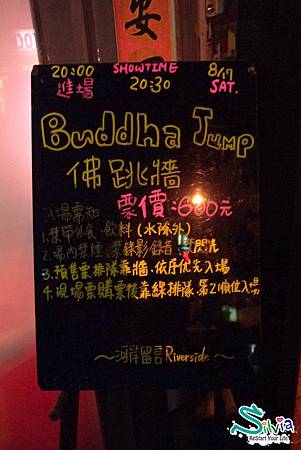 安
20:00 SHOWTIME 8/17
進場 20:30 SAT.
Buddha Jump
佛跳牆
票價:600元
入場需知
1.禁帶外食、飲料(水除外)
2.場內禁煙、禁錄影錄音、禁閃光
3.預售票排隊靠牆、依序優先入場
4.現場票購票後靠線排隊、第2順位入場
~河岸留言Riverside~
Silvia
ReStart Your Life